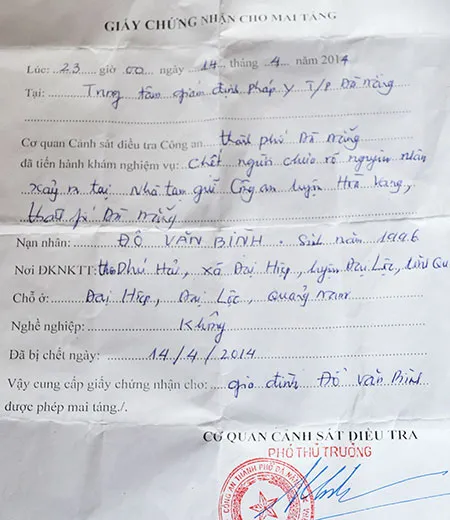 GIẤY CHỨNG NHẬN CHO MAI TÁNG
Lúc: 23 giờ 00 ngày 14 tháng 4 năm 2014
Tại: Trung tâm giám định Pháp Y T/P Đà Nẵng
Cơ quan Cảnh sát điều tra Công an thành phố Đà Nẵng
đã tiến hành khám nghiệm vụ: Chết người chưa rõ nguyên nhân
xảy ra tại Nhà tạm giữ Công an huyện Hòa Vang,
thành phố Đà Nẵng
Nạn nhân: ĐỖ VĂN BÌNH. Sinh năm 1996
Nơi ĐKNKTT: thôn Phú Hải, xã Đại Hiệp, huyện Đại Lộc, tỉnh Qu
Chỗ ở: Đại Hiệp, Đại Lộc, Quảng Nam
Nghề nghiệp: Không
Đã bị chết ngày: 14/4/2014
Vậy cung cấp giấy chứng nhận cho: gia đình Đỗ Văn Bình
được phép mai táng./.
CƠ QUAN CẢNH SÁT ĐIỀU TRA
PHÓ THỦ TRƯỞNG
CÔNG AN THÀNH PHỐ ĐÀ NẴNG